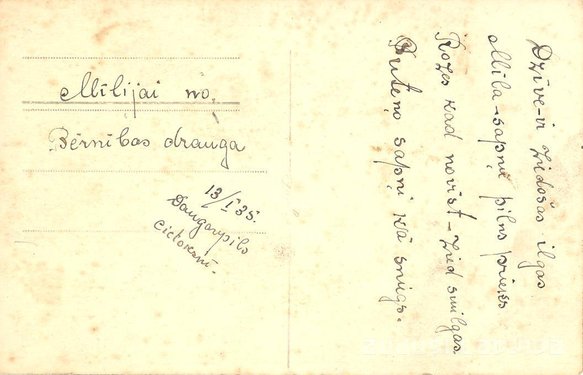 Mīlijai no,
Bērnības drauga
13/I 35.
Daugavpils
Cietoksnī.
Dzīve-ir ziedošas ilgas
Mīla-sapņu pilns prieks
Rozes kad novīst-zied smilgas
Puteņo sapņi kā sniegs.